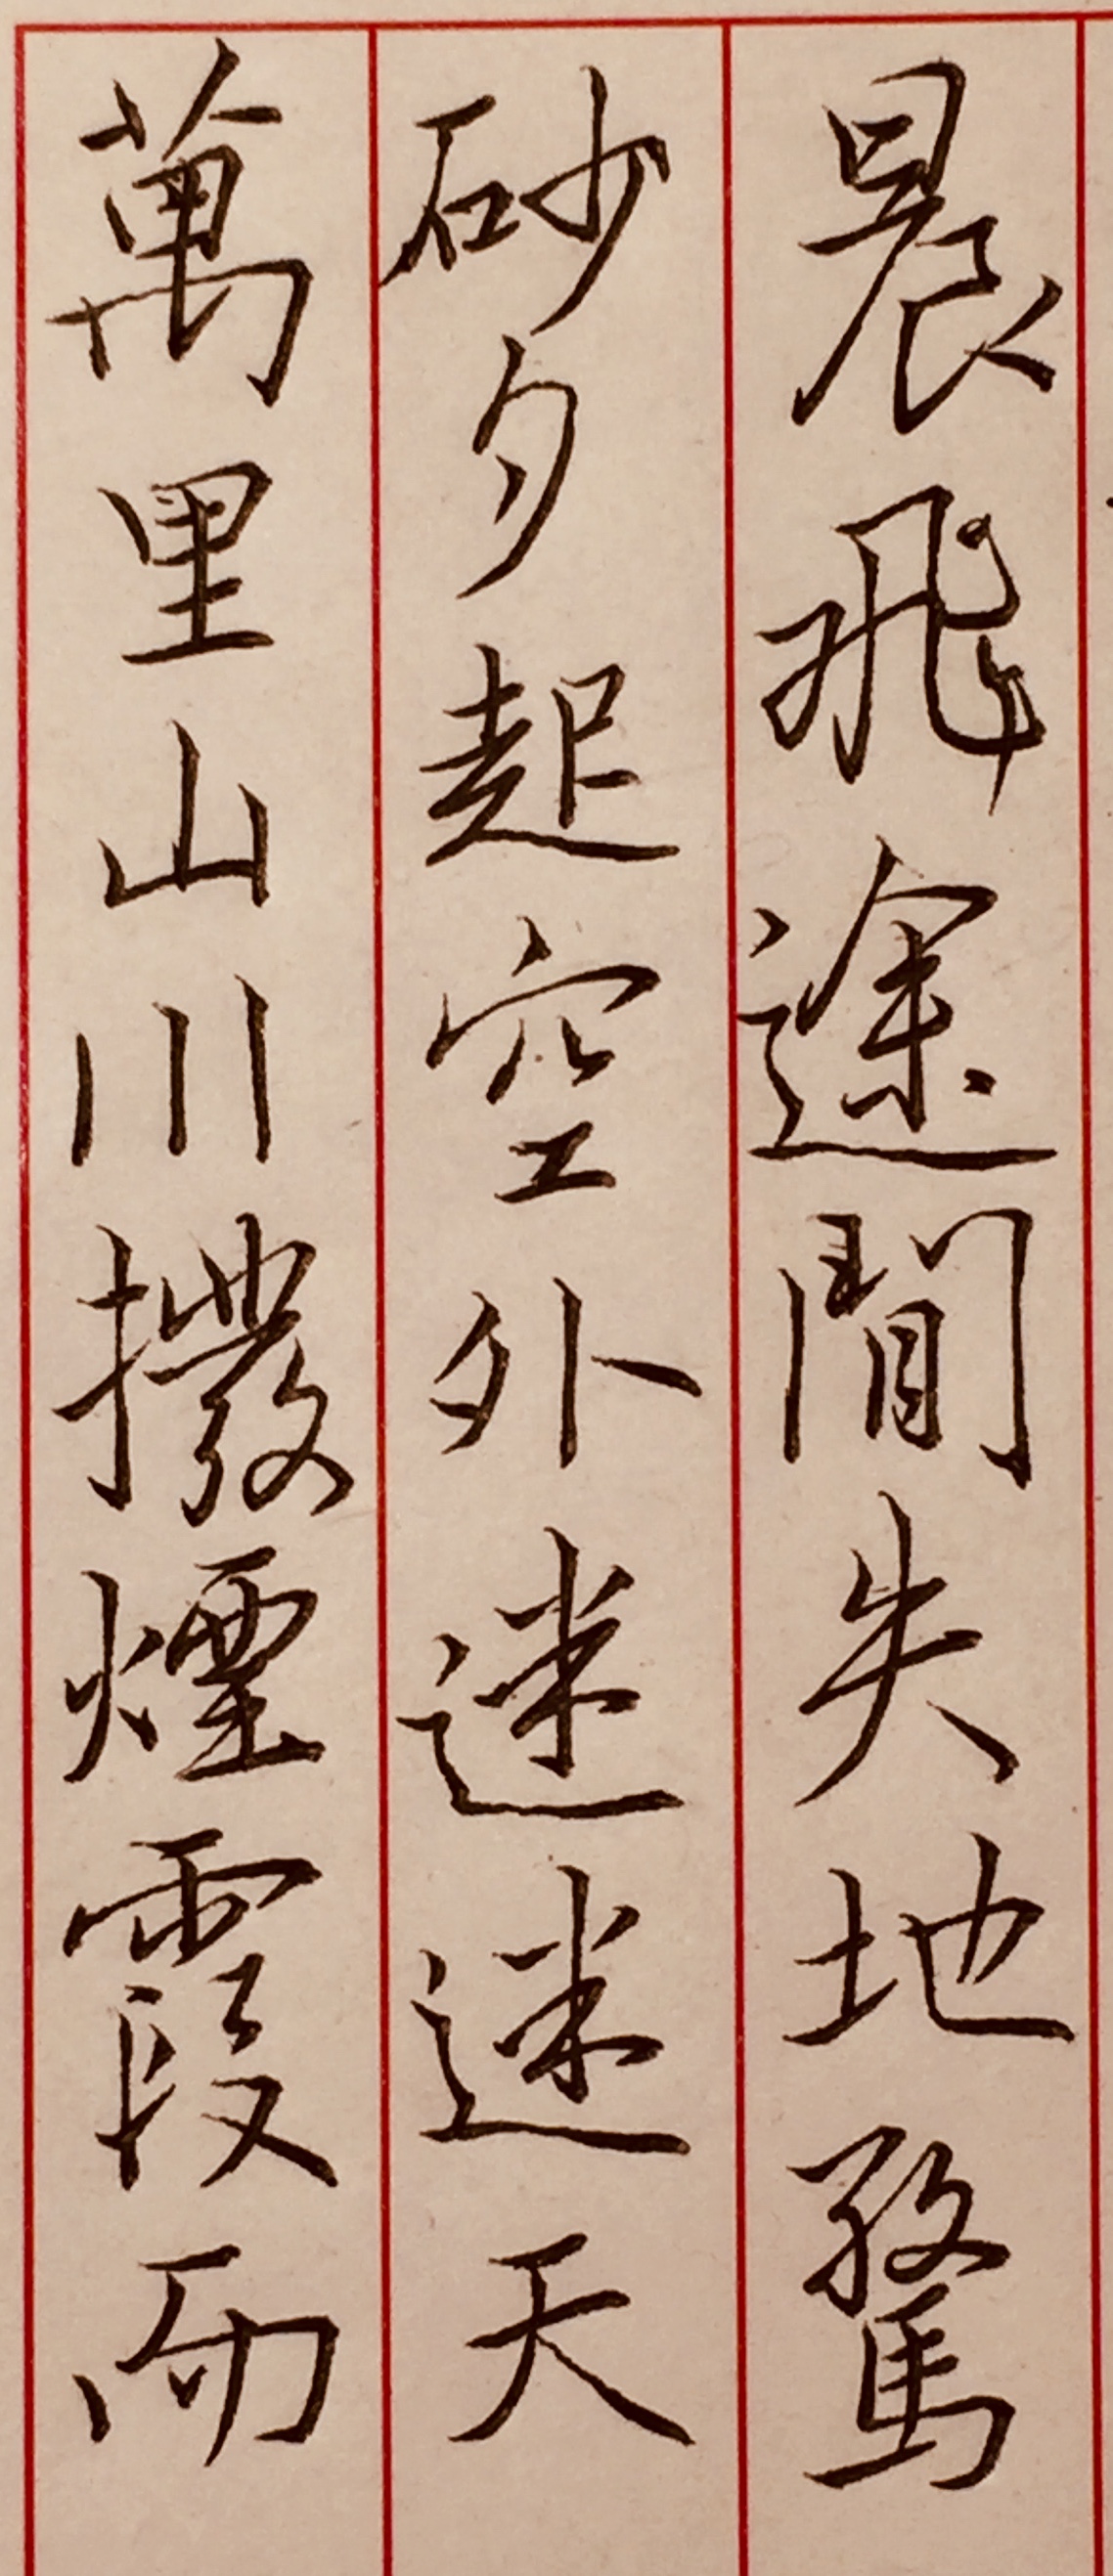 晨飛途閒失地驚
砂夕起空外迷迷天
萬里山川撥煙霞而